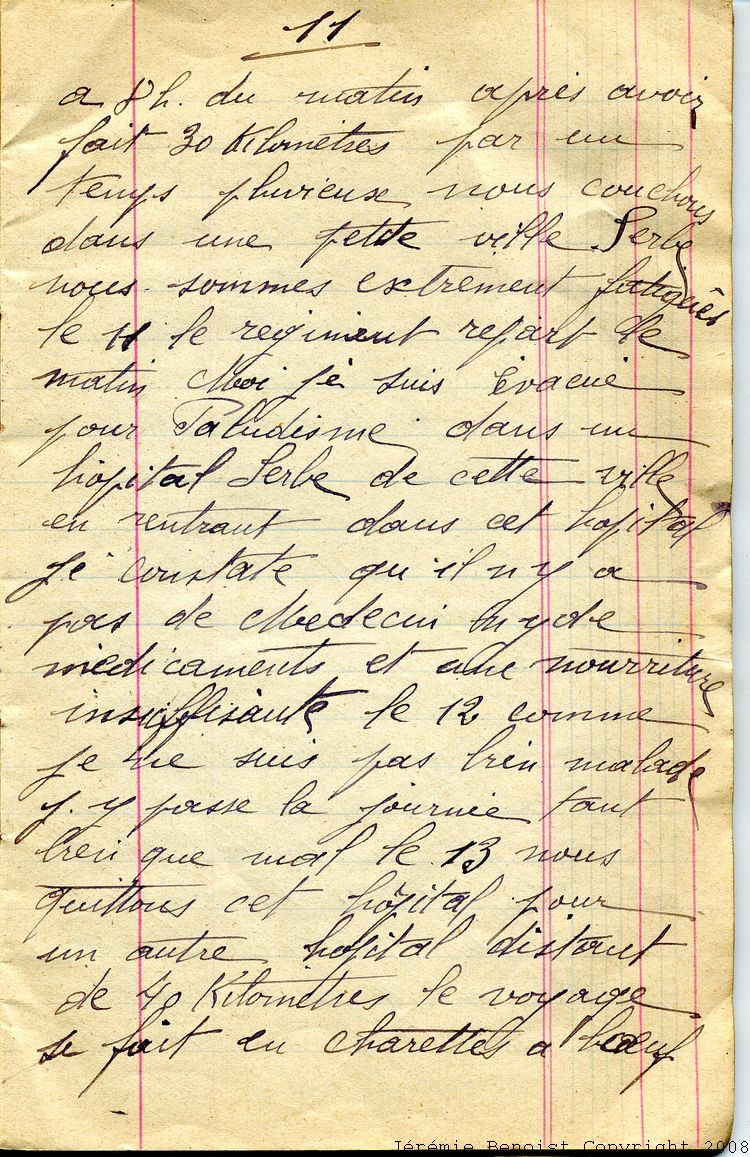 11
a 8h. du matin après avoir
fait 30 Kilomètres par un
temps pluvieux nous couchons
dans une petite ville Serbe
nous sommes extrement fatigués
le 11 le regiment repart le
matin Moi je suis évacué
pour Paludisme dans un
hôpital Serbe de cette ville
en rentrant dans cet hopital
je constate qu'il n y a
pas de Medecin ny de
médicaments et une nourriture
insuffisante le 12 comme
je ne suis pas bien malade
j. y passe la journée tant
bien que mal le 13 nous
quittons cet hôpital pour
un autre hopital distant
de 40 Kilomètres le voyage
se fait en charettes a bœuf
Jérémie Benoist Copyright 2008